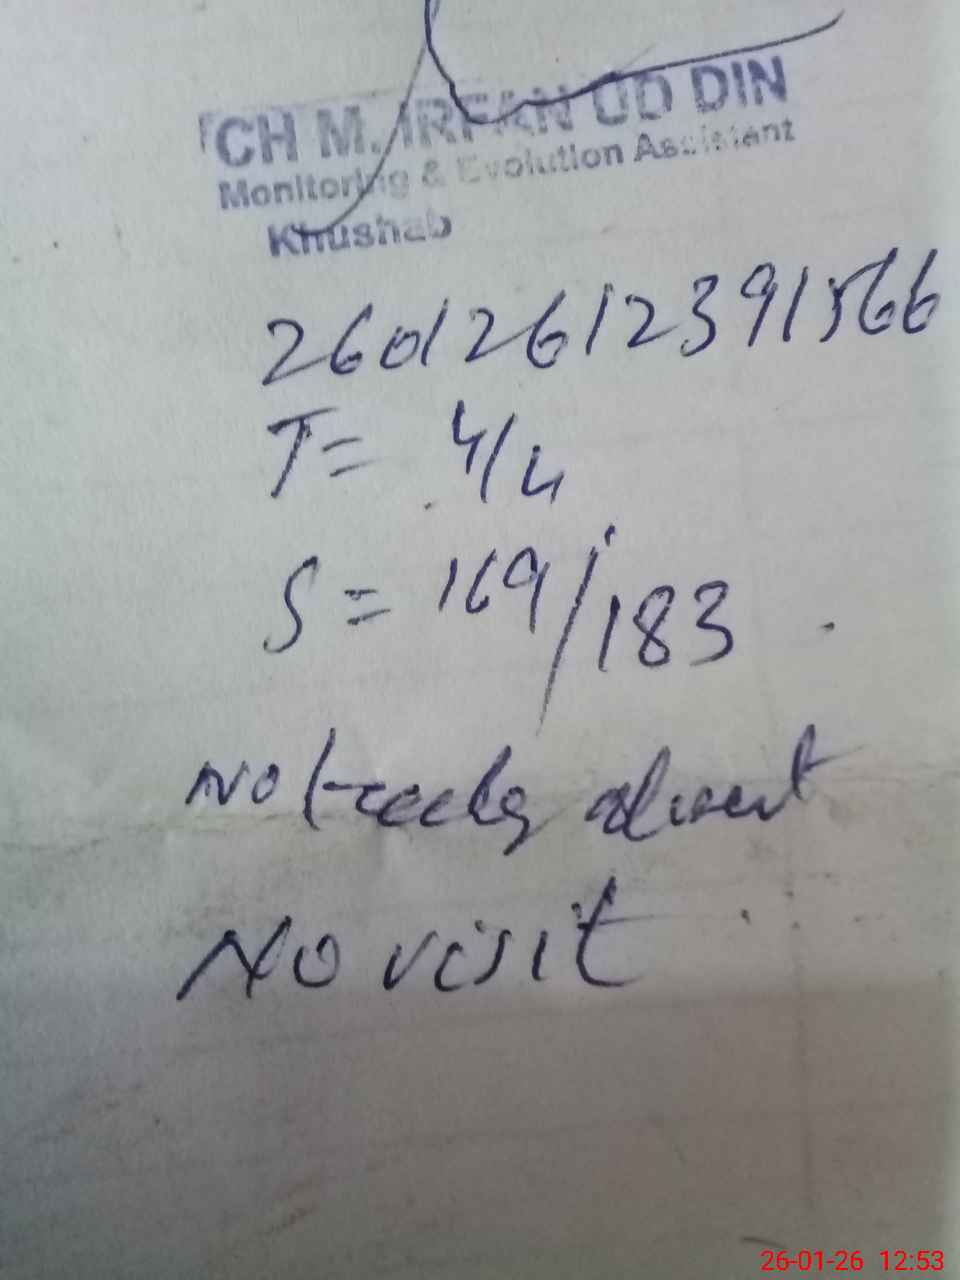 CH M. IRFAN UD DIN
Monitoring & Evolution Assistant
Khushab
26012612391566
T= 4/4
S = 169/183
No absent
No visit
26-01-26 12:53